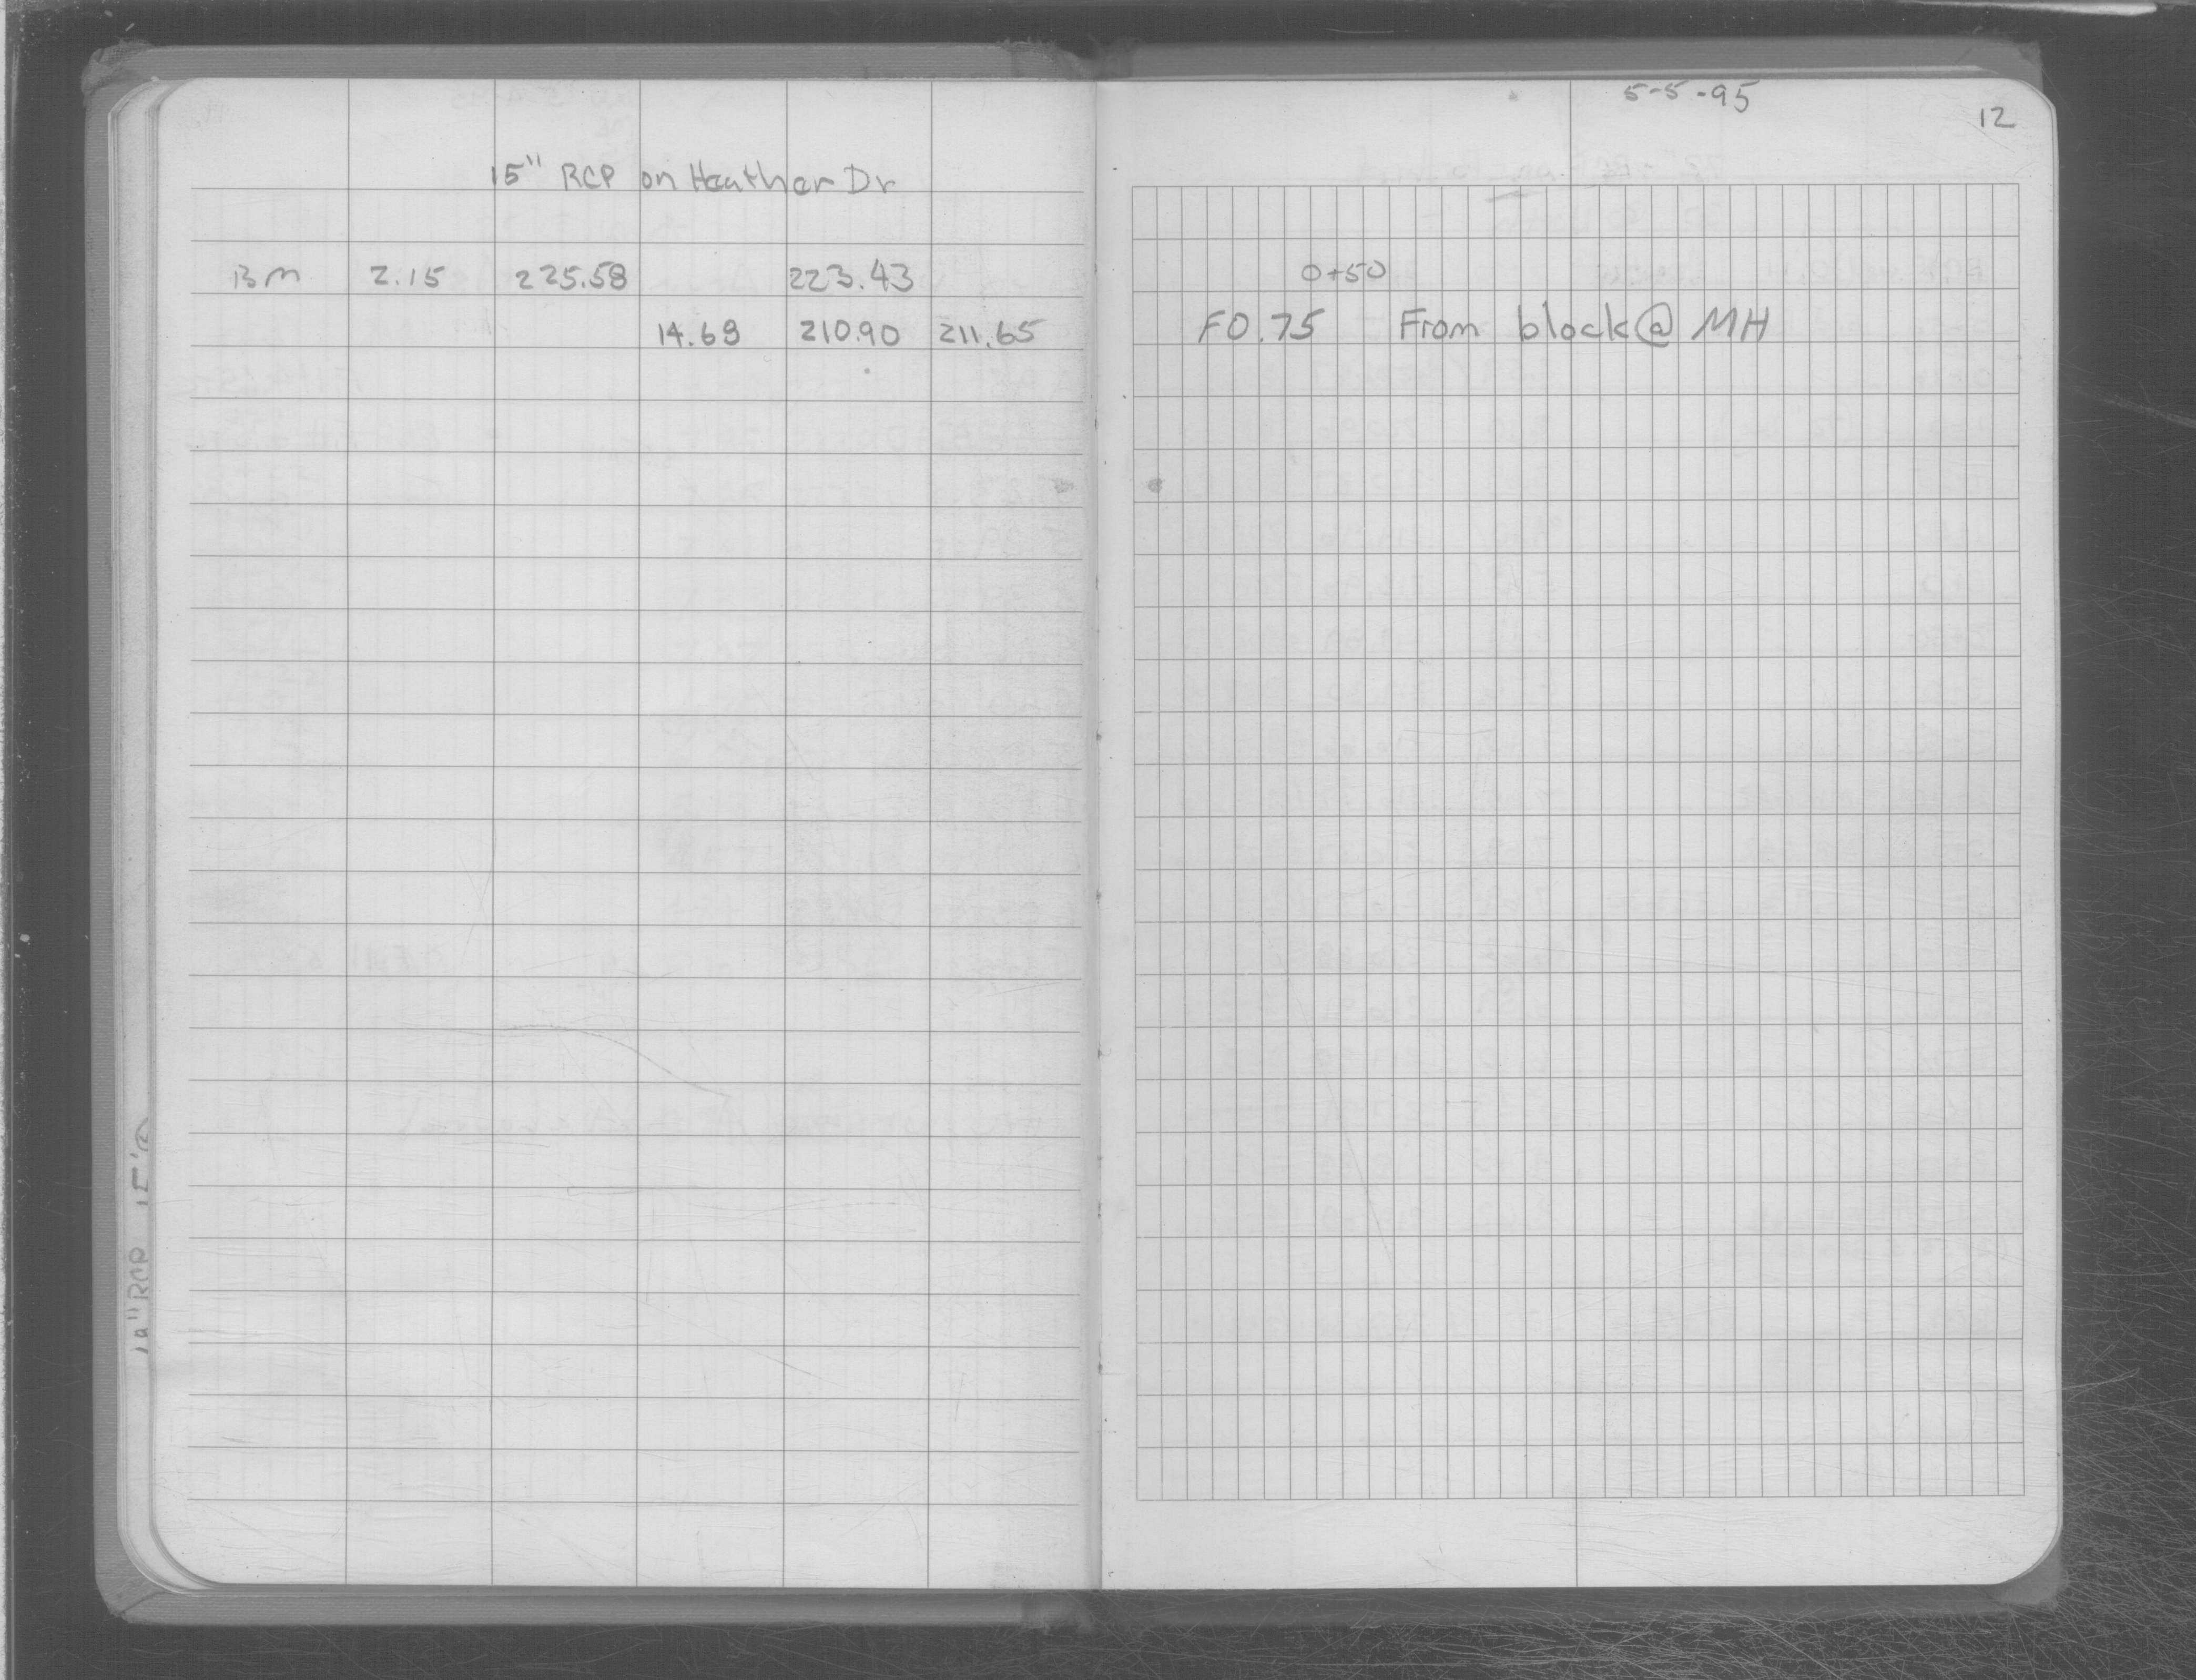 15" RCP on Heather Dr
BM 2.15 225.58 223.43
14.68 210.90 211.65
5-5-95
12
0+50
F0.75 From block@ MH
RCP